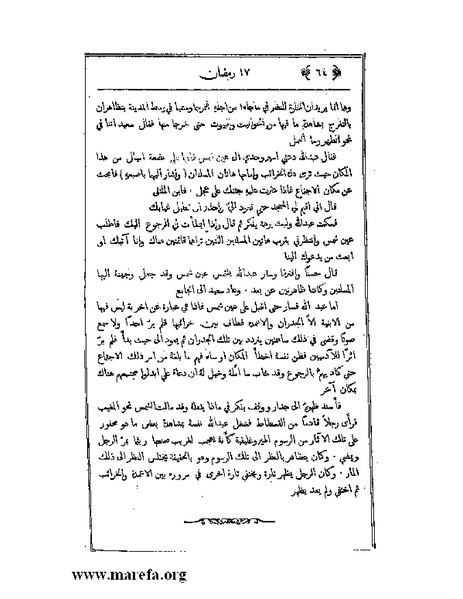 ﴿ ٦٤ ﴾ ١٧ رمضان
وهما انما يريدان المخابرة للنظر في ما جاءا من اجله فخرجا ومشيا في وسط المدينة يتظاهران
بالتفرج بمشاهدة ما فيها من حتى خرجا منها فقال سعيد اننا في
نحو الظهر وما العمل
فقال عبدالله دعني اسير وحدي الى عين شمس فانها على بضعة اميال من هذا
المكان حيث ترى تلك الخرائب وامامها هاتان المسلتان (واشار اليها باصبعه) فابحث
عن مكان الاجتماع فاذا عثرت عليه جئتك على عجل. فاين الملتقى
قال اني اقيم في المسجد حتى تعود اليّ واحذر ان تطيل غيابك
فسكت عبدالله ولبث برهة يفكر ثم قال واذا ابطأت في الرجوع اليك فاطلب
عين شمس وانتظرني بقرب هاتين المسلتين اللتين تراهما قائمتين هناك وانا آتيك او
ابعث من يدعوك الينا
قال حسنًا وافترقا وسار عبدالله يلتمس عين شمس وقد جعل وجهته اليها
المسلتين وكانتا ظاهرتين عن بعد. وعاد سعيد الى الجامع
اما عبد الله فسار حتى اقبل على عين شمس فاذا هي عبارة عن اخربة ليس فيها
من الابنية الا الجدران والاعمدة فطاف بين خرائبها فلم يرَ احدًا ولا سمع
صوتًا وقضى في ذلك ساعتين يتردد بين تلك الجدران ثم يعود الى حيث بدأ فلم يرَ
اثرًا للآدميين فظن نفسه اخطأ المكان او ساء فهم ما بلغه من امر ذلك الاجتماع
حتى كاد يهمّ بالرجوع وقد خاب ما امله وخيل له ان دعاة علي ابدلوا مجتمعهم هناك
بمكان آخر
فأسند ظهره الى جدار ووقف يفكر في ماذا يفعله وقد مالت الشمس نحو المغيب
فرأى رجلاً قادمًا من الفسطاط فشغل عبدالله نفسه بمشاهدة بعض ما هو محفور
على تلك الآثار من الرسوم الهيروغليفية كأنه يعجب لغريب صنعها ريثما يمر الرجل
ويمضي. وكان يتظاهر بالنظر الى تلك الرسوم وهو بالحقيقة يختلس النظر الى ذلك
المار. وكان الرجل يظهر تارة ويختفي تارة اخرى في مروره بين الاعمدة والخرائب
ثم اختفى ولم يعد يظهر
www.marefa.org